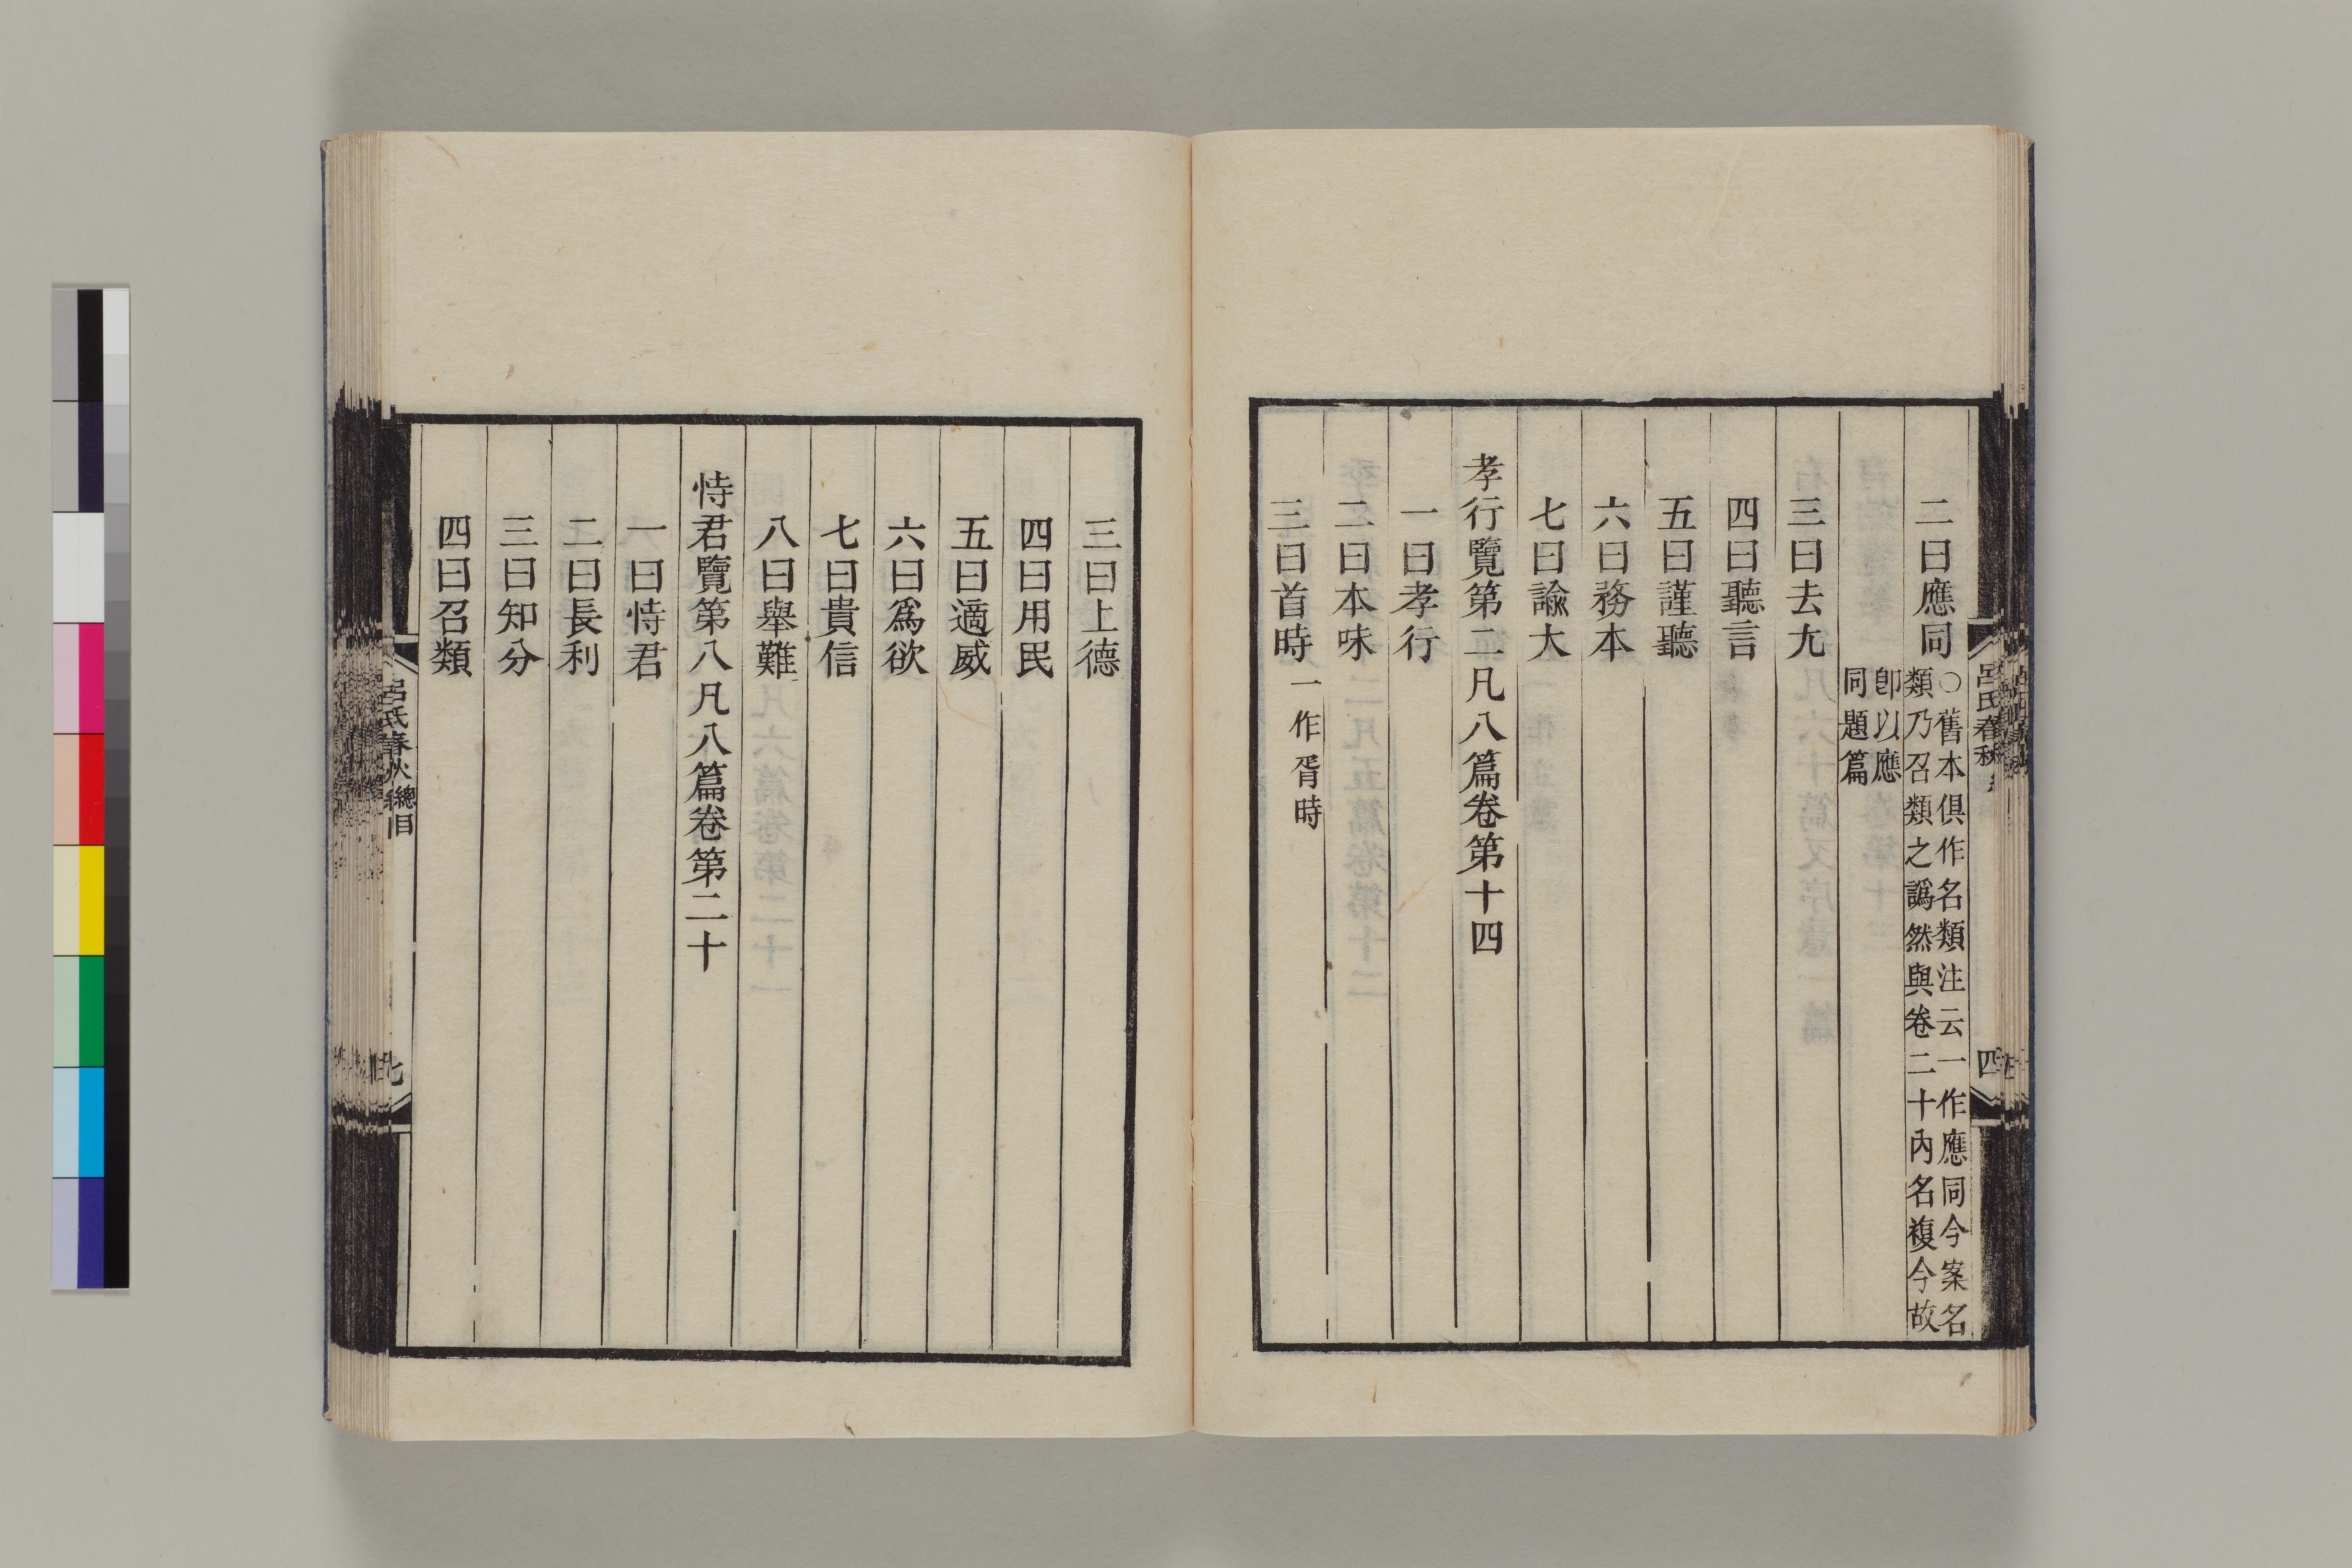 二曰應同
○舊本俱作名類注云一作應同今案名
類乃召類之譌然與卷二十內名複今故
卽以應
同題篇
三曰去尤
四曰聽言
五曰謹聽
六曰務本
七曰諭大
孝行覽第二凡八篇卷第十四
一曰孝行
二曰本味
三曰首時一作胥時
呂氏春秋
四
三曰上德
四曰用民
五曰適威
六曰爲欲
七曰貴信
八曰舉難
恃君覽第八凡八篇卷第二十
一曰恃君
二曰長利
三曰知分
四曰召類
呂氏春秋 總目
七